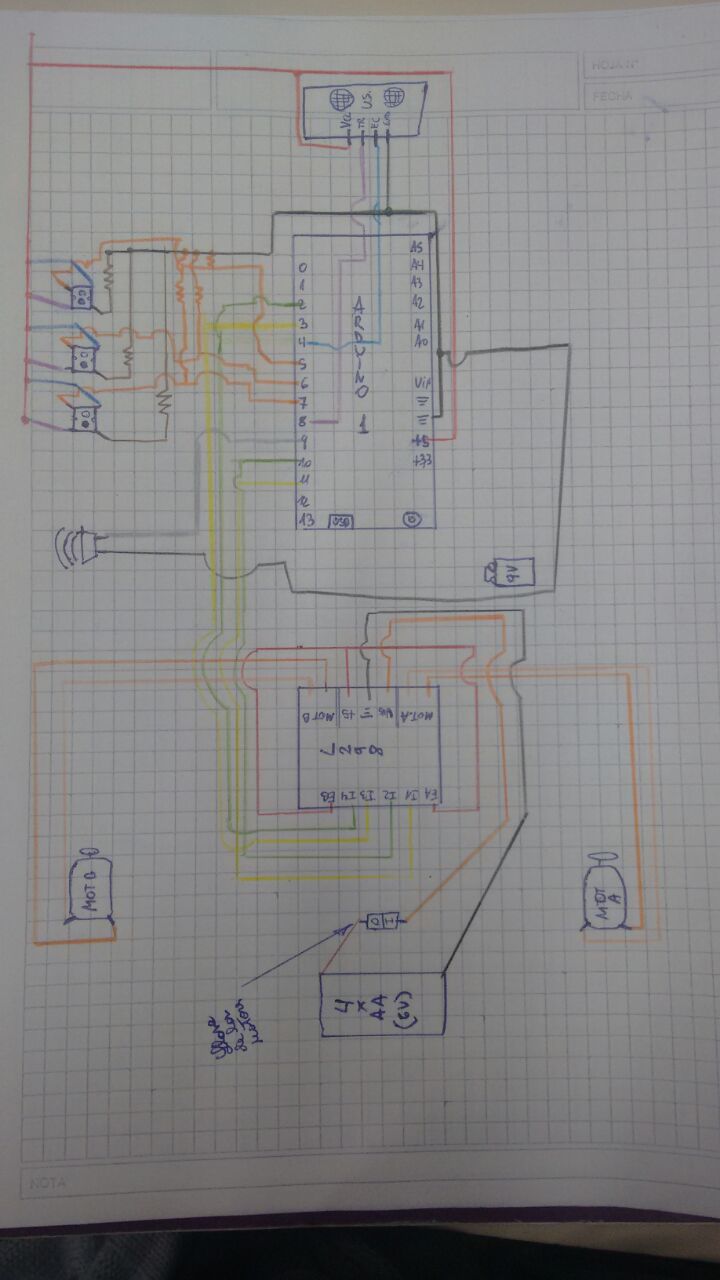 HOJA Nº
FECHA
U.S.
Vcc
TR
EC
GND
0
1
2
3
4
5
6
7
8
9
10
11
12
13
A5
A4
A3
A2
A1
A0
Vin
+5
+3,3
USB
9V
MOT B
+5
MOT.A
L298
EB
I4
I3
I2
I1
EA
MOT B
MOT A
4 x AA (6V)
NOTA